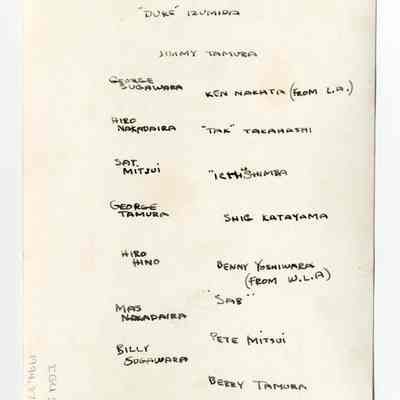 "DUKE" IZUMIDA
JIMMY TAMURA
GEORGE
SUGAWARA
KEN NAKATA (FROM L.A.)
HIRO
NAKADAIRA
"TAK" TAKAHASHI
SAT.
MITSUI
SHIMBA
GEORGE
TAMURA
SHIG KATAYAMA
HIRO
HINO
BENNY YOSHIWARA
(FROM W.L.A)
"SAB"
MAS
NAKADAIRA
PETE MITSUI
BILLY
SUGAWARA
BEBBY TAMURA